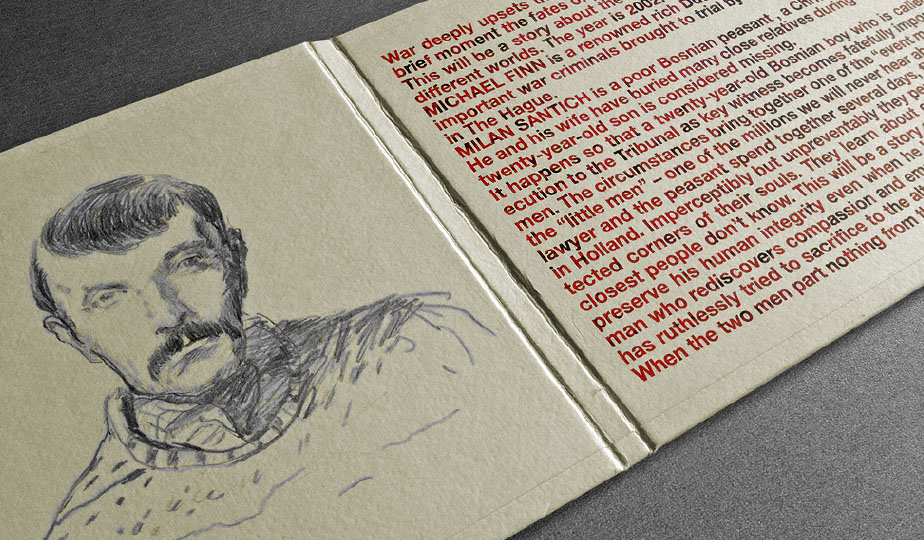 War deeply upsets th
brief moment the fates o
This will be a story about the
different worlds. The year is 2002.
MICHAEL FINN is a renowned rich Du
important war criminals brought to trial by
in The Hague.
MILAN SANTICH is a poor Bosnian peasant , a Chri
He and his wife have buried many close relatives during
twenty-year-old son is considered missing.
It happens so that a twenty-year-old Bosnian boy who is calle
ecution to the Tribunal as key witness becomes fatefully impo
men. The circumstances bring together one of the "event
the "little men" – one of the millions we will never hear
lawyer and the peasant spend together several days
in Holland. Imperceptibly but unpreventably they pe
tected corners of their souls. They learn about
closest people don't know. This will be a story
preserve his human integrity even when he
man who rediscovers compassion and e
has ruthlessly tried to sacrifice to the
When the two men part nothing from